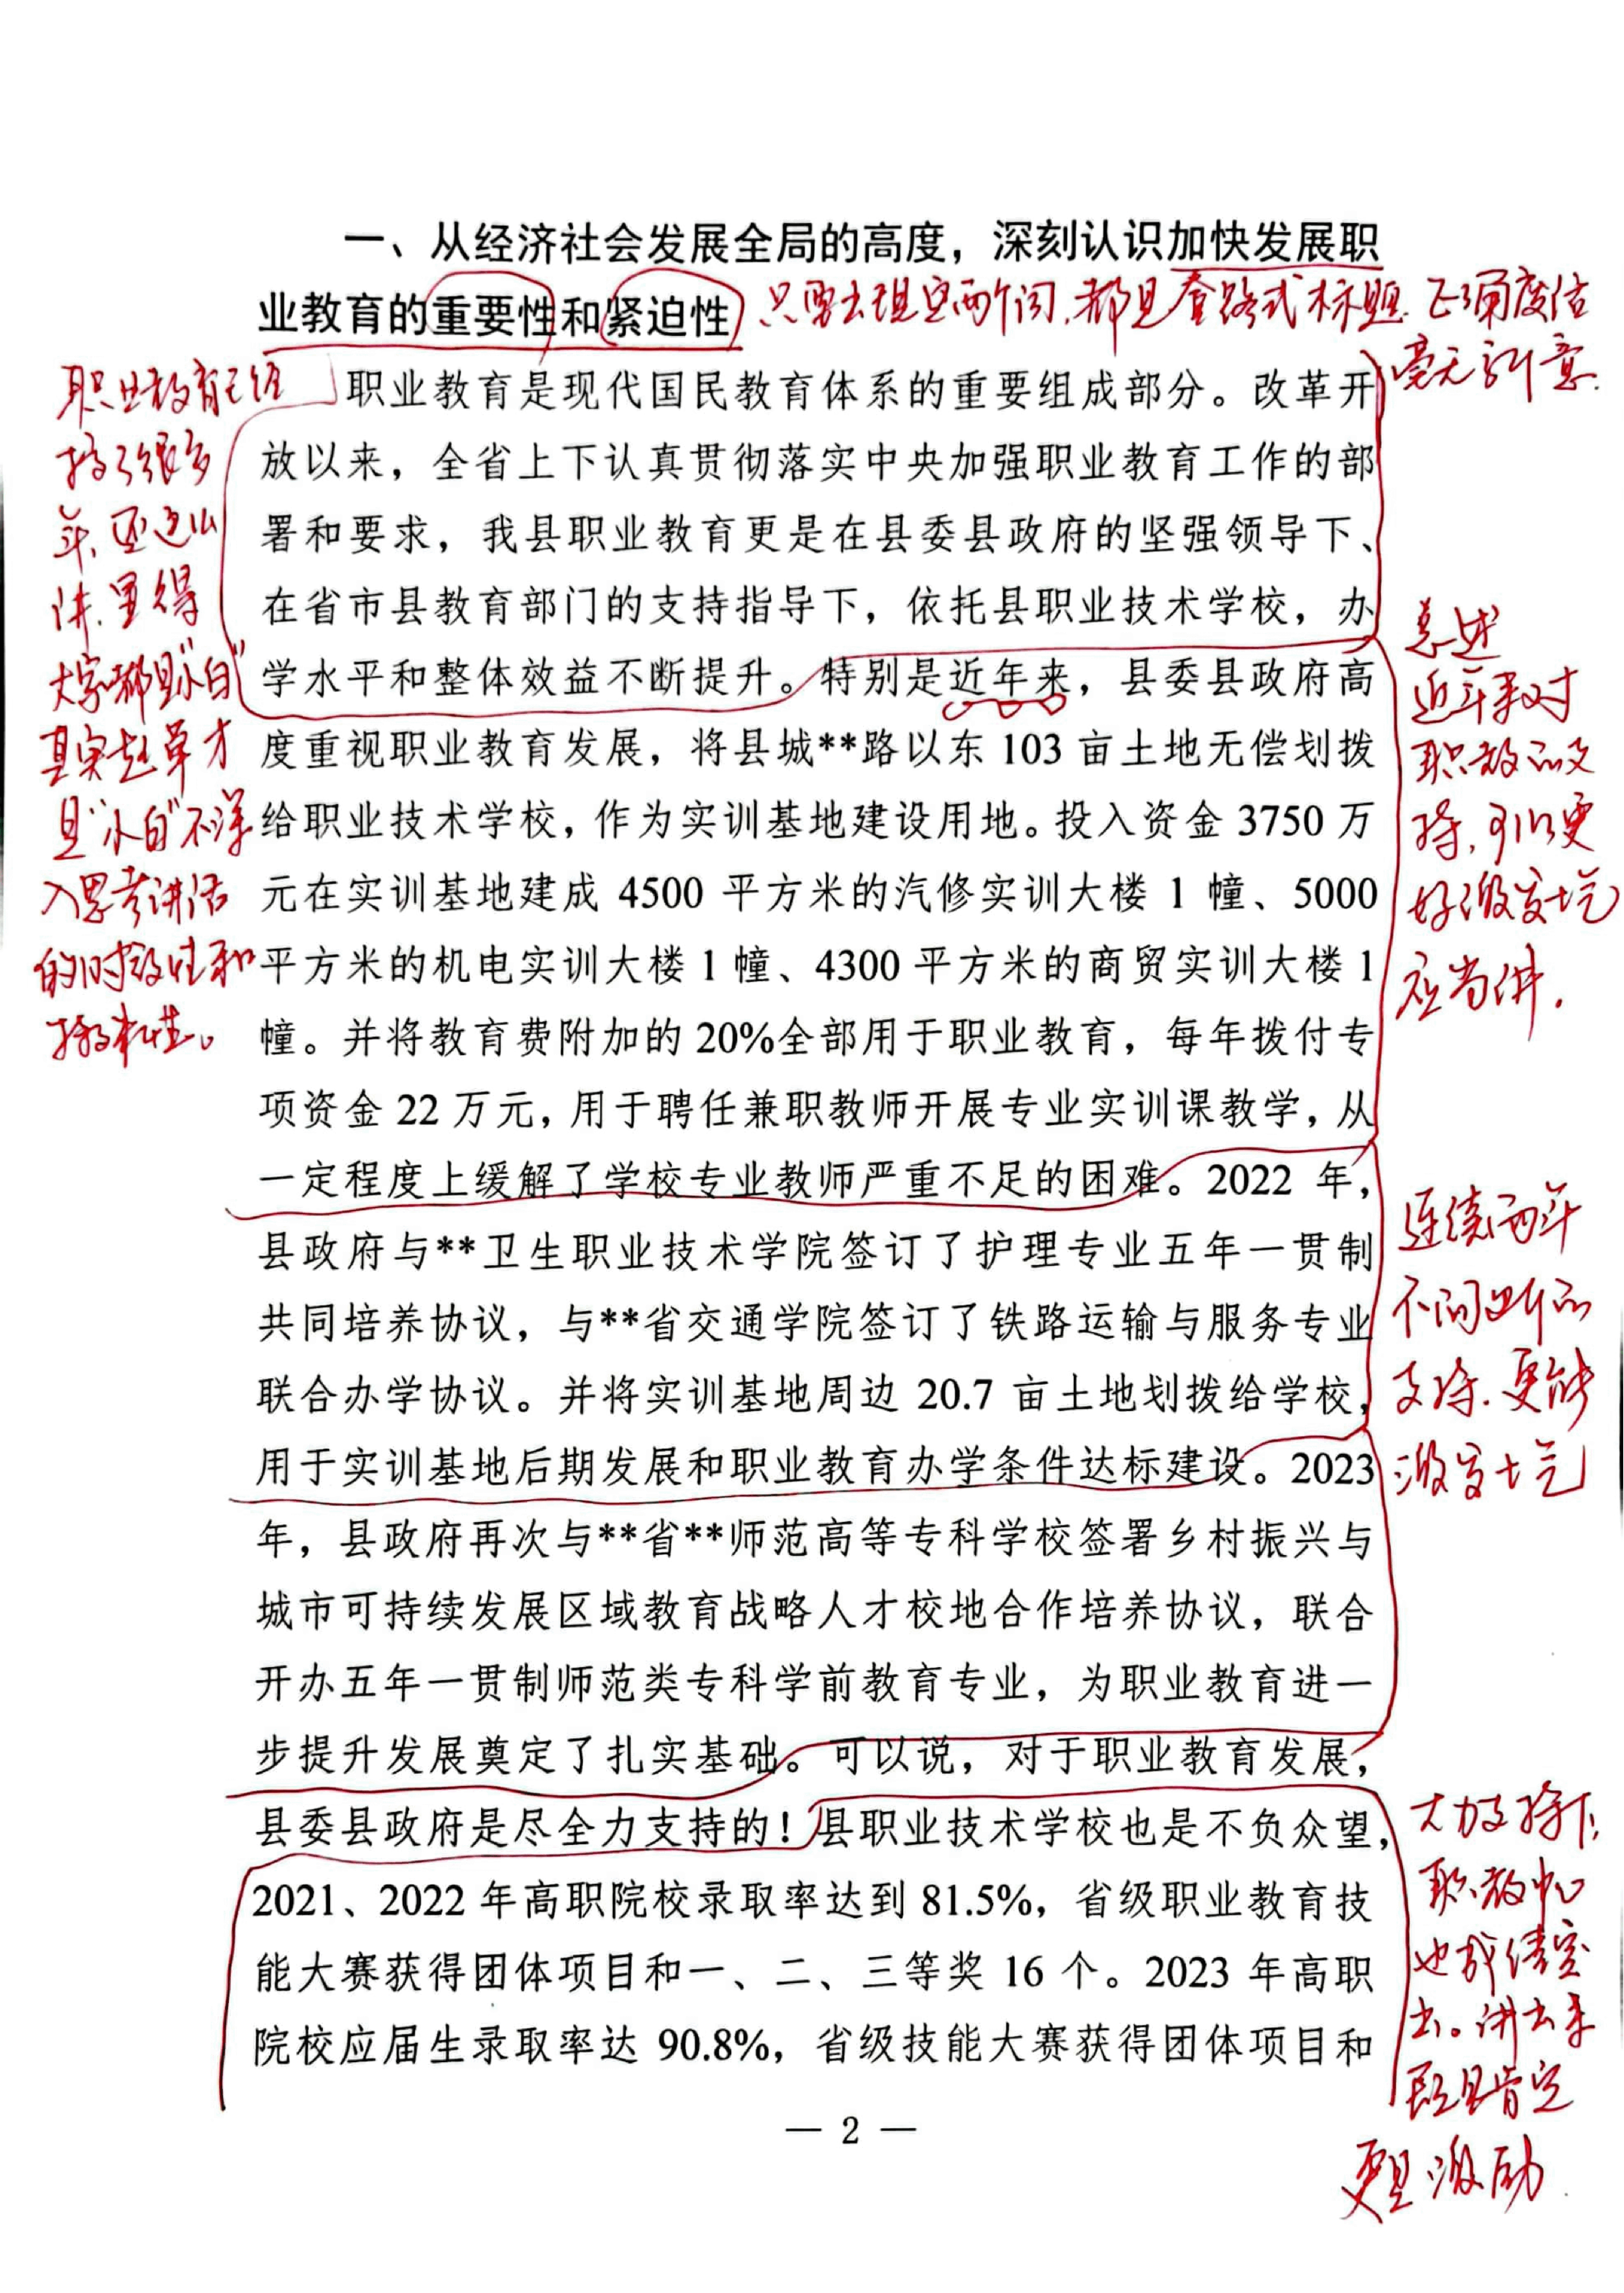 一、从经济社会发展全局的高度，深刻认识加快发展职
业教育的重要性和紧迫性
只要出现这两个词，都是套路式标题
毫无新意
职业教育已经
搞了很多
年，还这么
讲，显得
大家都是“小白”
其实起草才
是“小白”不深
入思考讲话
的时效性和
职业教育是现代国民教育体系的重要组成部分。改革开
放以来，全省上下认真贯彻落实中央加强职业教育工作的部
署和要求，我县职业教育更是在县委县政府的坚强领导下、
在省市县教育部门的支持指导下，依托县职业技术学校，办
学水平和整体效益不断提升。特别是近年来，县委县政府高
度重视职业教育发展，将县城**路以东 103 亩土地无偿划拨
给职业技术学校，作为实训基地建设用地。投入资金 3750 万
元在实训基地建成 4500 平方米的汽修实训大楼 1 幢、5000
平方米的机电实训大楼 1 幢、4300 平方米的商贸实训大楼 1
幢。并将教育费附加的 20%全部用于职业教育，每年拨付专
项资金 22 万元，用于聘任兼职教师开展专业实训课教学，从
一定程度上缓解了学校专业教师严重不足的困难。2022 年，
县政府与**卫生职业技术学院签订了护理专业五年一贯制
共同培养协议，与**省交通学院签订了铁路运输与服务专业
联合办学协议。并将实训基地周边 20.7 亩土地划拨给学校，
用于实训基地后期发展和职业教育办学条件达标建设。2023
年，县政府再次与**省**师范高等专科学校签署乡村振兴与
城市可持续发展区域教育战略人才校地合作培养协议，联合
开办五年一贯制师范类专科学前教育专业，为职业教育进一
步提升发展奠定了扎实基础。可以说，对于职业教育发展，
县委县政府是尽全力支持的！县职业技术学校也是不负众望，
2021、2022 年高职院校录取率达到 81.5%，省级职业教育技
能大赛获得团体项目和一、二、三等奖 16 个。2023 年高职
院校应届生录取率达 90.8%，省级技能大赛获得团体项目和
总述
近年来对
职教的支
持，可以更
好激发士气
应当讲．
连续两年
不间断的
支持．更能
激发士气
大力支持下，
职教中心
也成绩突
出。讲出来
既是肯定
更是激励
— 2 —